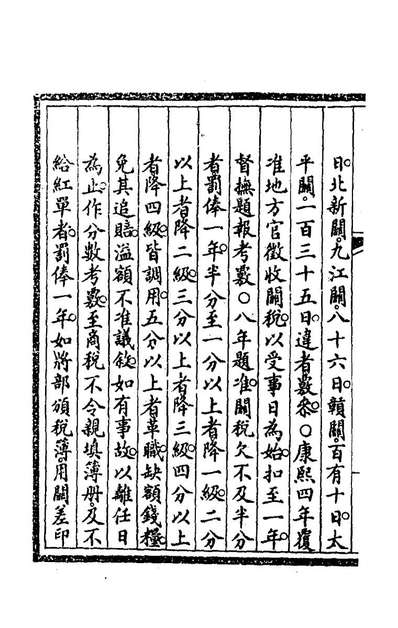 日北新關。九江關。八十六日。贛關。百有十日。太
平關。一百三十五日。違者覈叅。○康熙四年覆
准地方官徵收關稅。以受事日為始。扣至一年。
督撫題報考覈。○八年題准關稅欠不及半分
者罰俸一年。半分至一分以上者降一級。二分
以上者降二級。三分以上者降三級。四分以上
者降四級。皆調用。五分以上者革職。缺額錢糧
免其追賠。溢額不准議敘。如有事故。以離任日
為止。作分數考覈。至商稅不令親填簿冊。及不
給紅單者。罰俸一年。如將部頒稅簿。用關差印